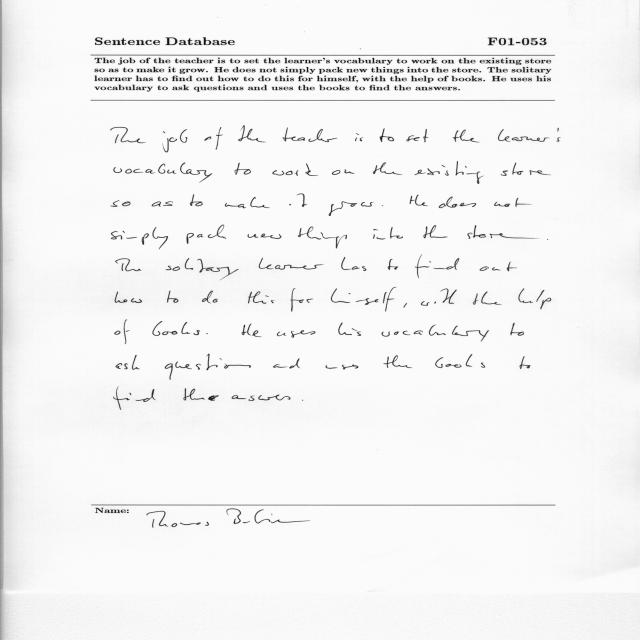 Sentence Database F01-053
The job of the teacher is to set the learner's vocabulary to work on the existing store
so as to make it grow. He does not simply pack new things into the store. The solitary
learner has to find out how to do this for himself, with the help of books. He uses his
vocabulary to ask questions and uses the books to find the answers.
The job of the teacher is to set the learner's
vocabulary to work on the existing store
so as to make it grow. He does not
simply pack new things into the store.
The solitary learner has to find out
how to do this for himself, with the help
of books. He uses his vocabulary to
ask question and uses the books to
find the answer.
Name: Thomas